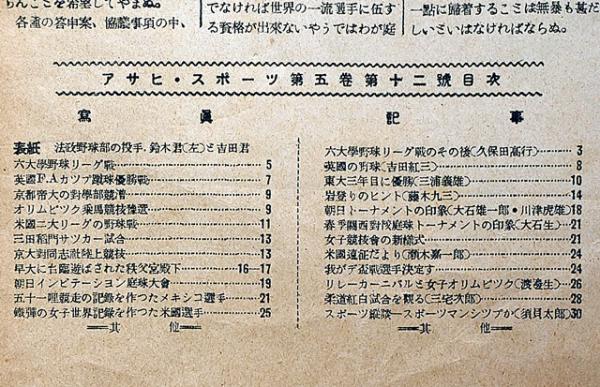 各種の答申案、協議事項の中、
でなければ世界の一流選手に伍す
る資格が出來ないやうではわが庭
一點に歸着することは無暴も甚だ
しいといはなければならぬ。
アサヒ・スポーツ第五卷第十二號目次
寫眞
表紙 法政野球部の投手、鈴木君(左)と吉田君
六大學野球リーグ戰 5
英國F.Aカツプ蹴球優勝戰 7
京都帝大の對學部競漕 9
オリムピツク乘馬競技豫選 9
米國二大リーグの野球戰 11
三田稻門サツカー試合 13
京大對同志社陸上競技 13
早大に台臨遊ばされた秩父宮殿下 16―17
朝日インビテーション庭球大會 19
五十一哩競走の記錄を作つたメキシコ選手 21
鐵彈の女子世界記錄を作つた米國選手 25
其他
記事
六大學野球リーグ戰のその後(久保田高行) 3
英國の野球(吉田紅三) 8
東大三年目に優勝(三浦義雄) 10
岩登りのヒント(藤木九三) 14
朝日トーナメントの印象(大石雄一郎・川津虎雄) 18
春季關西對抗庭球トーナメントの印象(大石生) 21
女子競技會の新樣式 21
米國遠征だより(瀨木嘉一郎) 21
我がデ盃戰選手決定す 24
リレーカーニバルと女子オリムピツク(渡邊生) 26
柔道紅白試合を觀る(三宅次郎) 28
スポーツ縱談―スポーツマンシツプか(須貝太郎) 30
其他